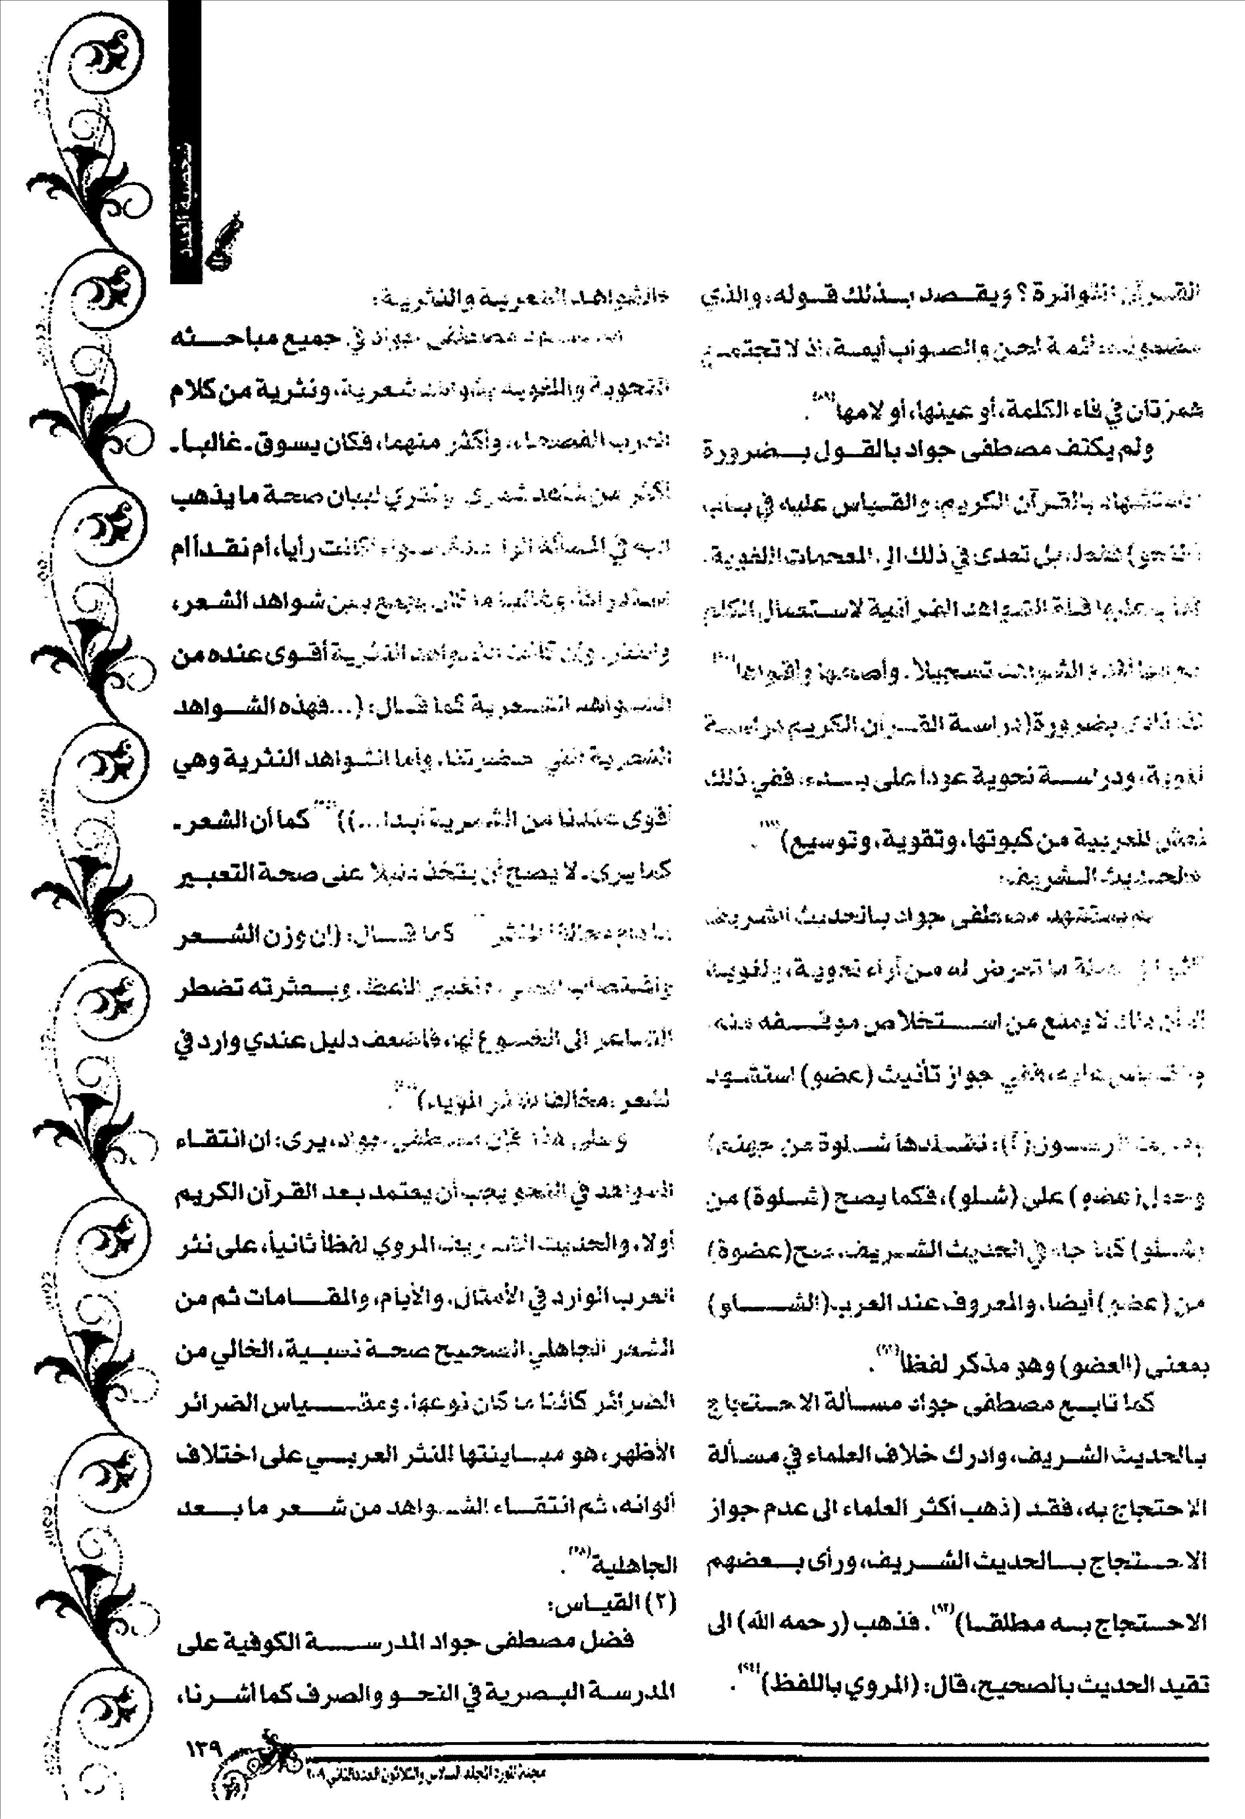 شخصية العدد
القرآن المتواترة؟ ويقصد بذلك قوله، والذي
أئمة لحن والصواب أيمة، اذ لا تجتمع
همزتان في فاء الكلمة، أو عينها، أو لامها(٨٩).
ولم يكتف مصطفى جواد بالقول بضرورة
بالقرآن الكريم، والقياس عليه في باب
(النحو) فقط، بل تعدى في ذلك الى المعجمات اللغوية،
قلة الشواهد القرآنية لاستعمال الكلم
الشواهد تسجيلا، وأصحها وأقواها
بضرورة (دراسة القرآن الكريم دراسة
لغوية، ودراسة نحوية عوداً على بدء، ففي ذلك
نعش للعربية من كبوتها، وتقوية، وتوسيع)(٩١).
*الحديث الشريف:
لم يستشهد مصطفى جواد بالحديث الشريف
ما تعرض له من آراء نحوية، ولغوية
الا أن ذلك لا يمنع من استخلاص موقفه منه،
ففي جواز تأنيث (عضو) استشهد
شلوة من جهنم)
(عضو) على (شلو)، فكما يصح (شلوة) من
(شلو) كما جاء في الحديث الشريف، صح (عضوة)
من (عضو) أيضا، والمعروف عند العرب (الشلو)
بمعنى (العضو) وهو مذكر لفظا(٩٢).
كما تابع مصطفى جواد مسألة الاحتجاج
بالحديث الشريف، وادرك خلاف العلماء في مسألة
الاحتجاج به، فقد (ذهب أكثر العلماء الى عدم جواز
الاحتجاج بالحديث الشريف، ورأى بعضهم
الاحتجاج به مطلقا)(٩٣). فذهب (رحمه الله) الى
تقيد الحديث بالصحيح، قال: (المروي باللفظ)(٩٤).
*الشواهد الشعرية والنثرية:
مصطفى جواد في جميع مباحثه
النحوية واللغوية بشواهد شعرية، ونثرية من كلام
العرب الفصحاء، وأكثر منهما، فكان يسوق ـ غالباً ـ
أكثر من شاهد شعري ونثري لبيان صحة ما يذهب
اليه في المسألة الواحدة، سواء أكانت رأيا، أم نقداً أم
استدراكا، وغالبا ما كان يجمع بين شواهد الشعر،
والنثر، وإن كانت الشواهد النثرية أقوى عنده من
الشواهد الشعرية كما قال: (...فهذه الشواهد
الشعرية التي حضرتنا، وأما الشواهد النثرية وهي
أقوى عندنا من الشعرية أبدا...)) كما أن الشعر ـ
كما يرى ـ لا يصح أن يتخذ دليلا على صحة التعبير
ما دام مخالفا للنثر كما قال: (إن وزن الشعر
النمط وبعثرته تضطر
الشاعر الى الخضوع لها، فأضعف دليل عندي وارد في
لشعر، مخالفا للنثر المؤيد).
وعلى هذا فإن مصطفى جواد، يرى: ان انتقاء
الشواهد في النحو يجب أن يعتمد بعد القرآن الكريم
أولا، والحديث الشريف المروي لفظاً ثانياً، على نثر
العرب الوارد في الأمثال، والأيام، والمقامات ثم من
الشعر الجاهلي الصحيح صحة نسبية، الخالي من
الضرائر كائنا ما كان نوعها، ومقياس الضرائر
الأظهر، هو مباينتها للنثر العربي على اختلاف
ألوانه، ثم انتقاء الشواهد من شعر ما بعد
الجاهلية(٩٨).
(٢) القياس:
فضل مصطفى جواد المدرسة الكوفية على
المدرسة البصرية في النحو والصرف كما أشرنا،
١٣٩
مجلة المورد المجلد السادس والثلاثون العدد الثاني ٢٠٠٩